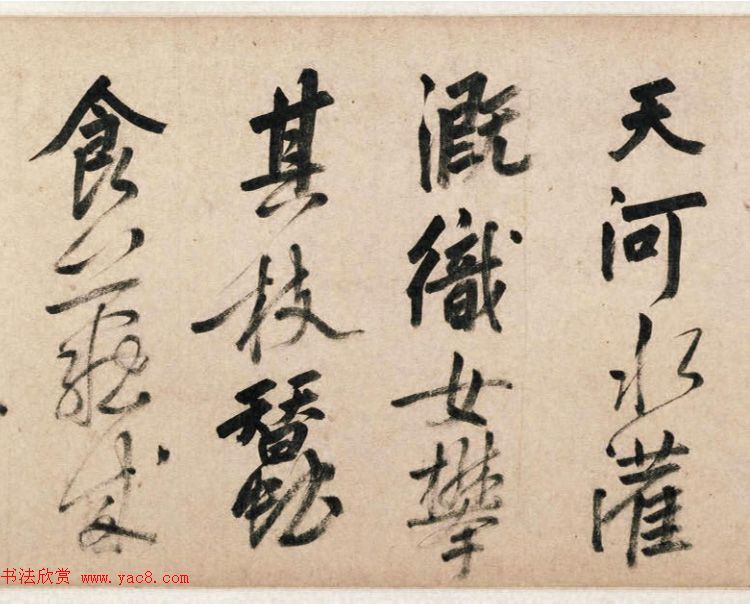 天河水灌
溉織女攀
其枝蠶
食成
书法欣赏 www.yac8.com